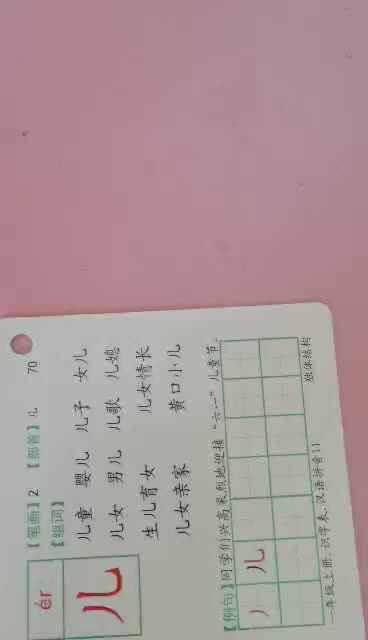 ér
儿
【笔画】2 【部首】儿 70
【组词】
儿童 婴儿 儿子 女儿
儿女 男儿 儿歌 儿媳
生儿育女 儿女情长
儿女亲家 黄口小儿
【例句】同学们兴高采烈地迎接“六一”儿童节。
丿 儿
一年级上册·识字表·汉语拼音11 独体结构